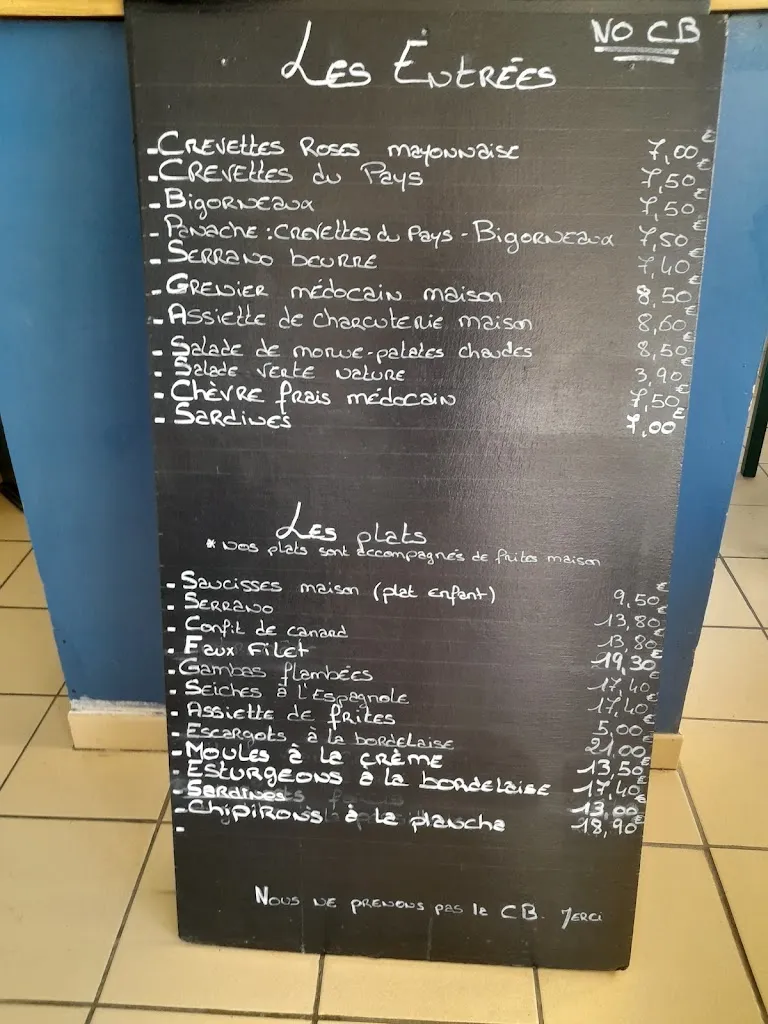 NO CB
Les Entrées
- Crevettes Roses mayonnaise 7,00€
- Crevettes du Pays 7,50€
- Bigorneaux 7,50€
- Panache : crevettes du Pays - Bigorneaux 7,50€
- Serrano beurre 7,40€
- Grenier médocain maison 8,50€
- Assiette de charcuterie maison 8,60€
- Salade de morue-patates chaudes 8,50€
- Salade verte nature 3,90€
- Chèvre frais médocain 7,50€
- Sardines 7,00€
Les plats
* Nos plats sont accompagnés de frites maison
- Saucisses maison (plat enfant) 9,50€
- Serrano 13,80€
- Confit de canard 13,80€
- Faux Filet 19,30€
- Gambas flambées 17,40€
- Seiches à l'Espagnole 17,40€
- Assiette de frites 5,00€
- Escargots à la bordelaise 21,00€
- Moules à la crème 13,50€
- Esturgeons à la bordelaise 17,40€
- Sardines 13,00€
- Chipirons à la plancha 18,90€
-
Nous ne prenons pas la CB. Merci